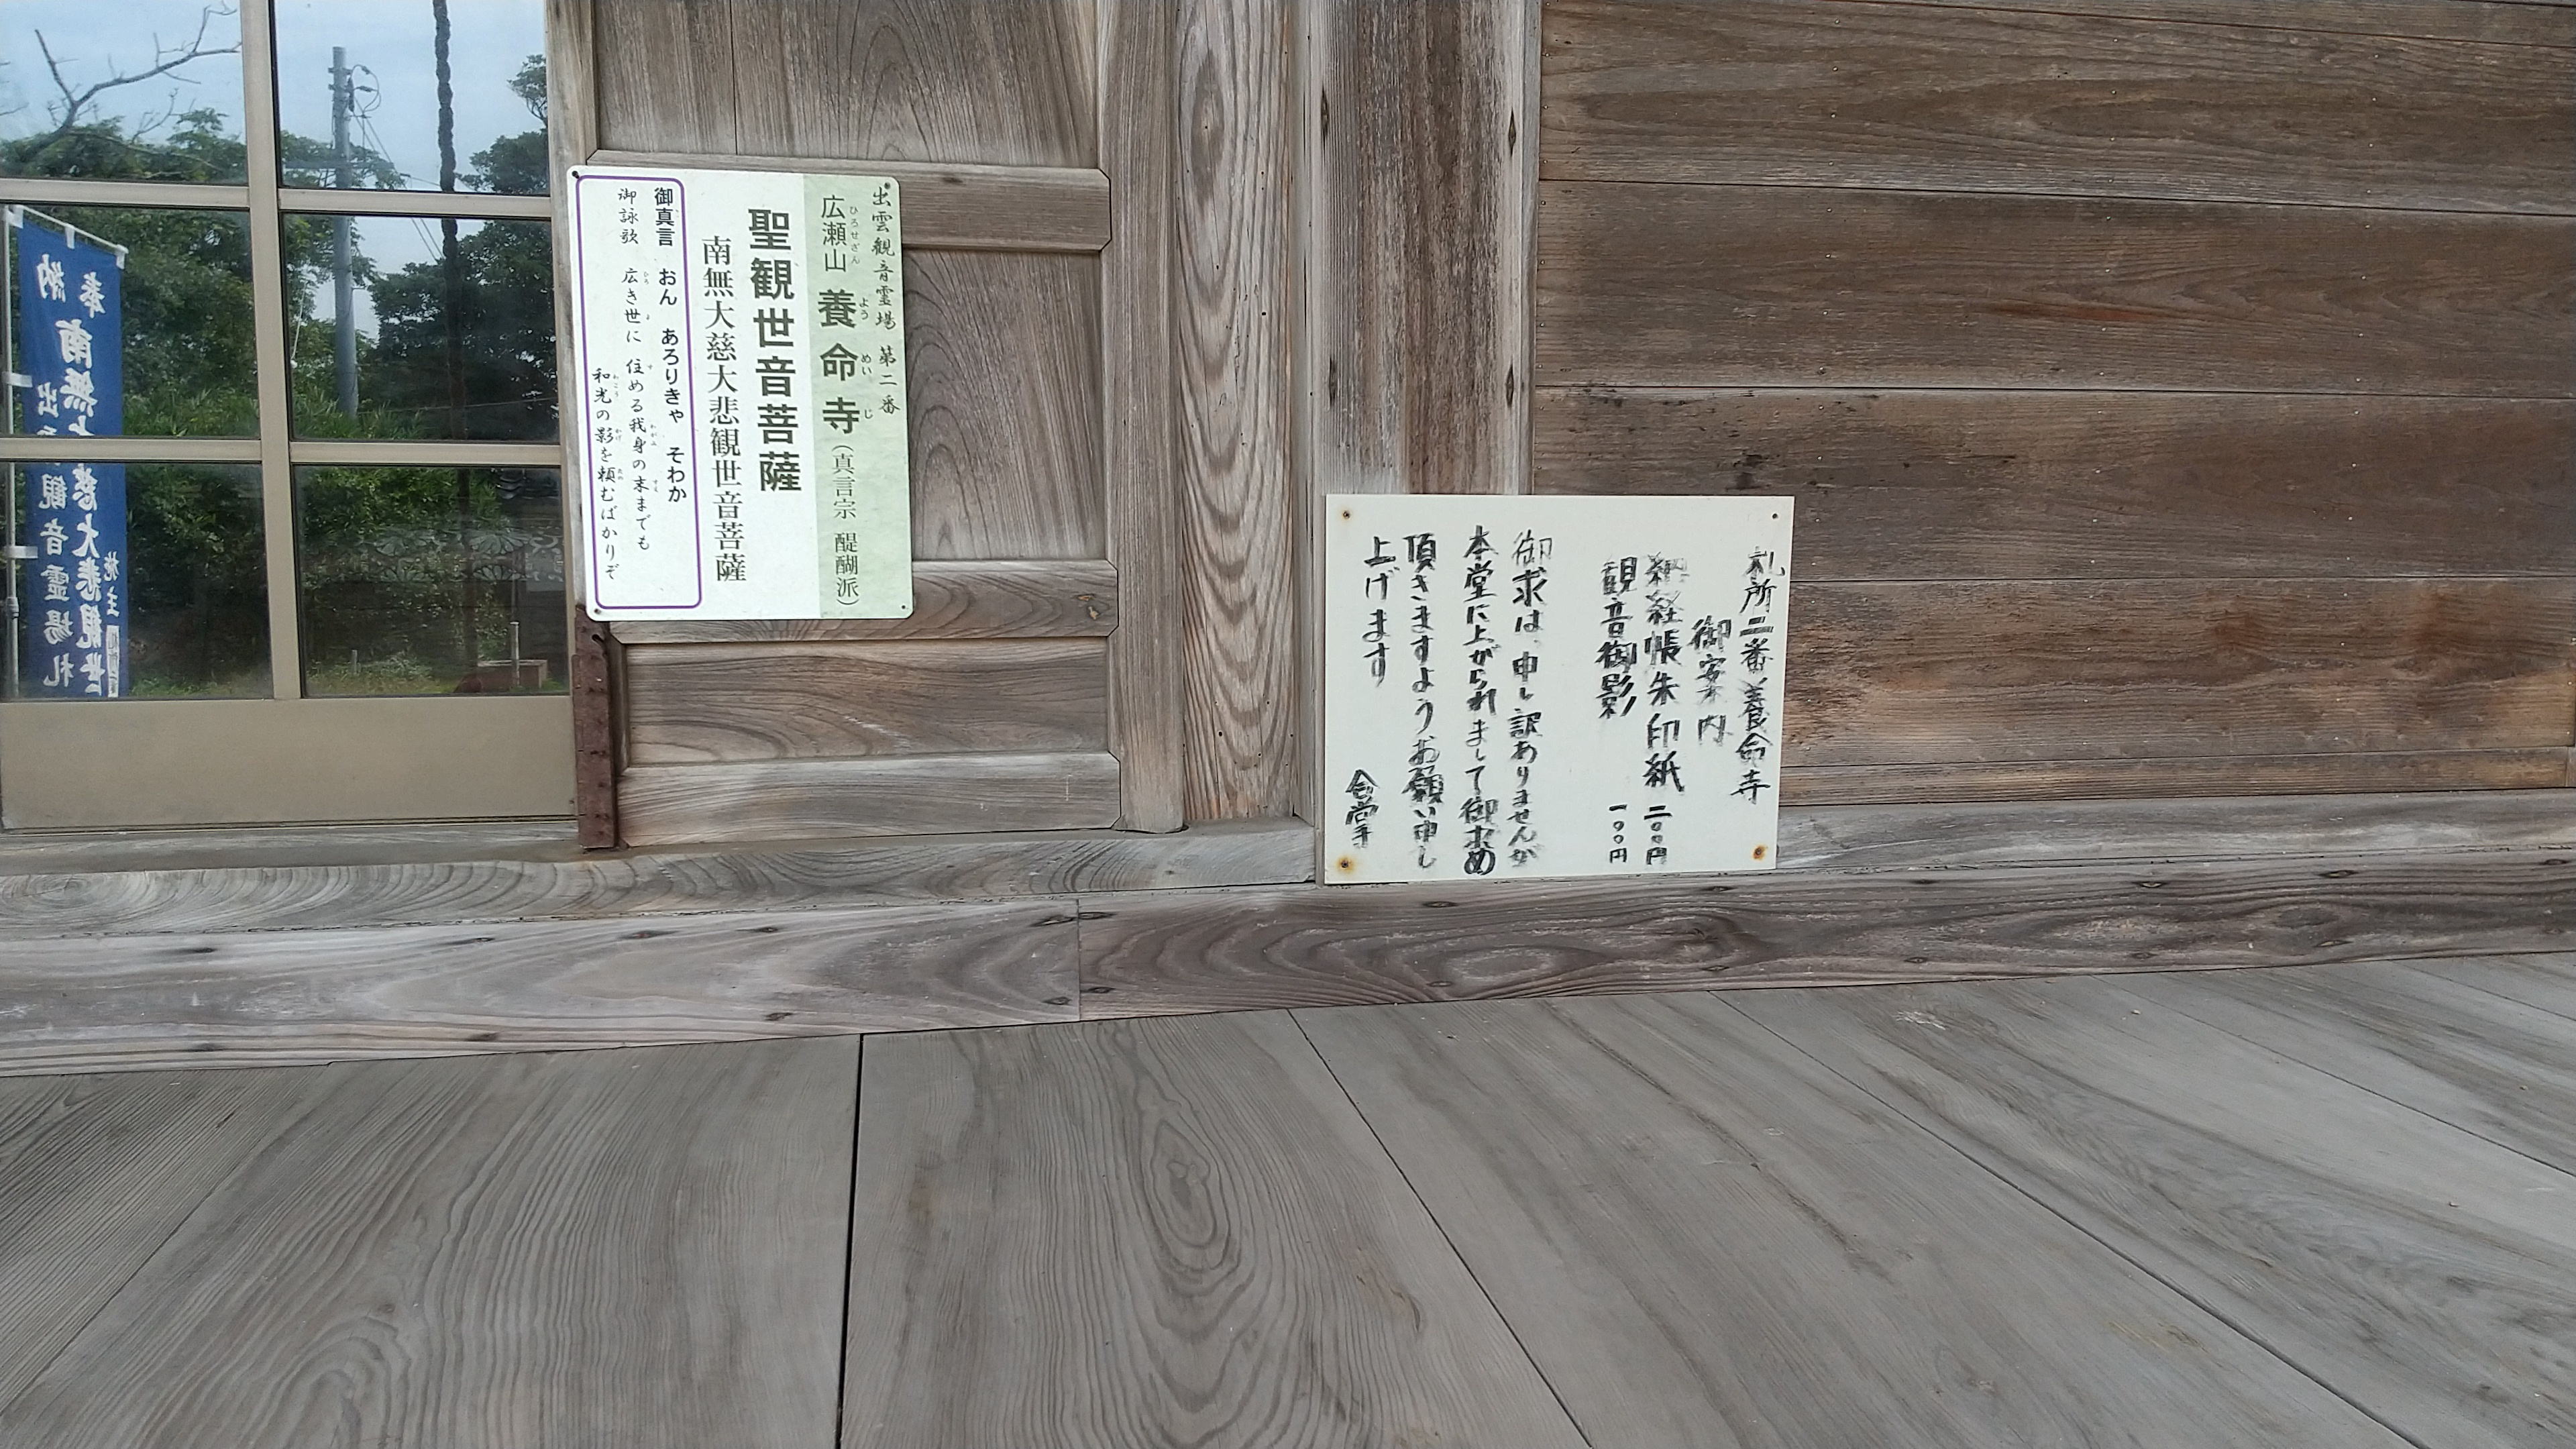 出雲観音霊場 第二番
広瀬山 養命寺(真言宗 醍醐派)
ひろせざん ようめいじ
聖観世音菩薩
南無大慈大悲観世音菩薩
御真言 おん あろりきゃ そわか
御詠歌 広き世に 住める我身の末までも
和光の影を頼むばかりぞ
札所二番養命寺
御案内
納経帳朱印紙 二〇〇円
観音御影 一〇〇円
御求は、申し訳ありませんが
本堂に上がられまして御求め
頂きますようお願い申し
上げます
奉納
南無大慈大悲観世
観音霊場札
施主